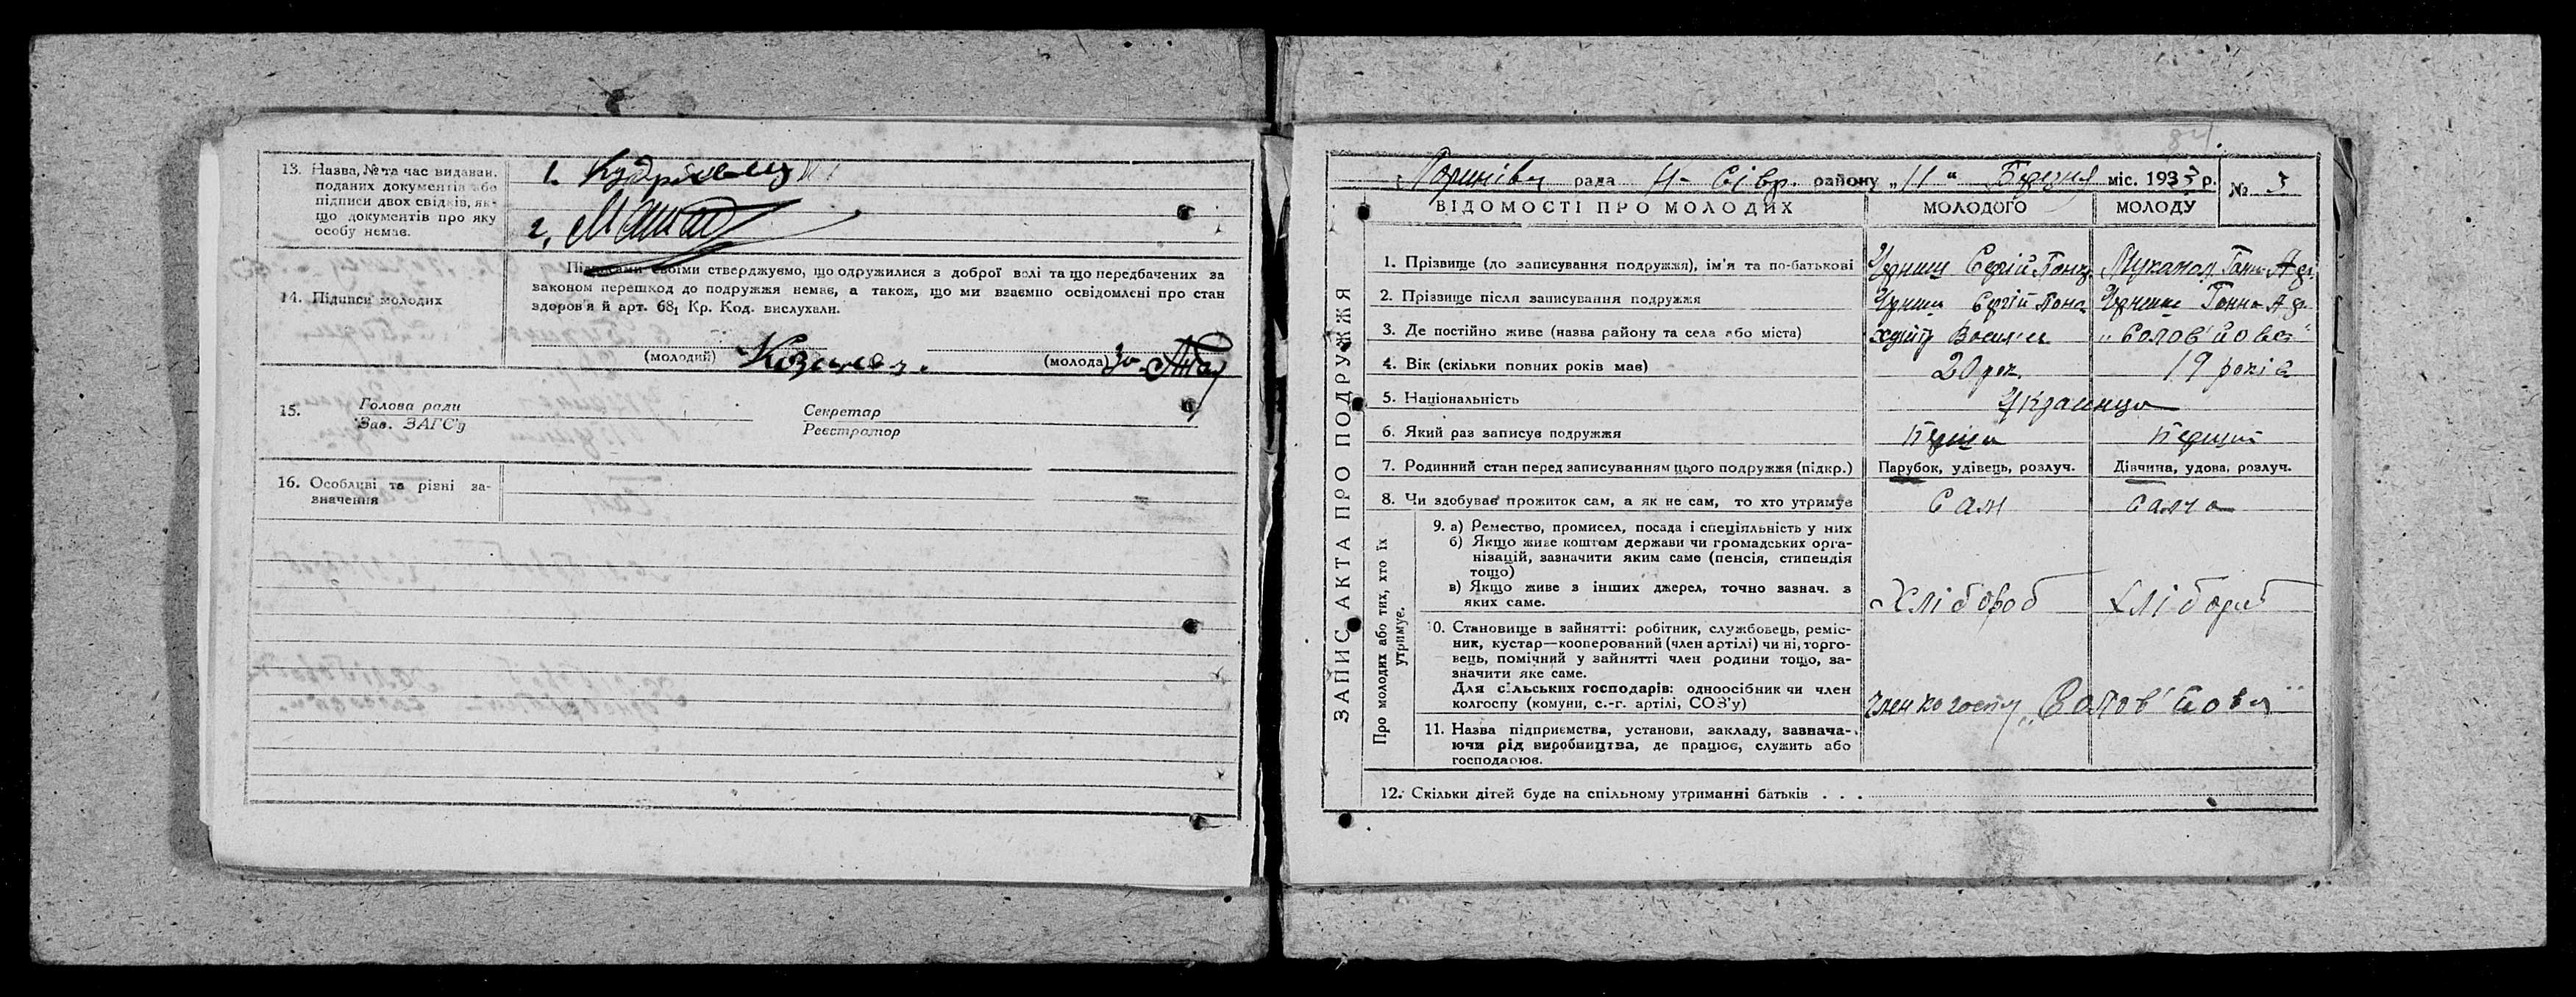 13. Назва, № та час видаван.
поданих документів або
підписи двох свідків, як-
що документів про яку
особу немає.
1.
2.
Підписами своїми стверджуємо, що одружилися з доброї волі та що передбачених за
законом перешкод до подружжя немає, а також, що ми взаємно освідомлені про стан
здоров'я й арт. 68₁ Кр. Код. вислухали.
14. Підписи молодих
(молодий)
(молода)
15.
Голова ради
Зав. ЗАГС'у
Секретар
Реєстратор
16. Особливі та різні за-
значення
84
рада Н- Сівр. району „11" Березня міс. 1933 р.
№ 3
ВІДОМОСТІ ПРО МОЛОДИХ
МОЛОДОГО
МОЛОДУ
ЗАПИС АКТА ПРО ПОДРУЖЖЯ
1. Прізвище (до записування подружжя), ім'я та по-батькові
Сергій
2. Прізвище після записування подружжя
Сергій
Ганна
3. Де постійно живе (назва району та села або міста)
хутір
„Солов'йова"
4. Вік (скільки повних років має)
20 рок.
19 років
5. Національність
Українці
6. Який раз записує подружжя
Перший
7. Родинний стан перед записуванням цього подружжя (підкр.)
Парубок, удівець, розлуч.
Дівчина, удова, розлуч.
8. Чи здобуває прожиток сам, а як не сам, то хто утримує
Сам
Сама
Про молодих або тих, хто їх
утримує.
9. а) Ремество, промисел, посада і спеціяльність у них
б) Якщо живе коштом держави чи громадських орга-
нізацій, зазначити яким саме (пенсія, стипендія
тощо)
в) Якщо живе з інших джерел, точно зазнач. з
яких саме.
Хлібороб
Хлібороб
10. Становище в зайнятті: робітник, службовець, реміс-
ник, кустар—кооперований (член артілі) чи ні, торго-
вець, помічний у зайнятті член родини тощо, за-
значити яке саме.
Для сільських господарів: одноосібник чи член
колгоспу (комуни, с.-г. артілі, СОЗ'у)
член колгоспу „Солов'йова"
11. Назва підприємства, установи, закладу, зазнача-
ючи рід виробництва, де працює, служить або
господарює.
12. Скільки дітей буде на спільному утриманні батьків . . .